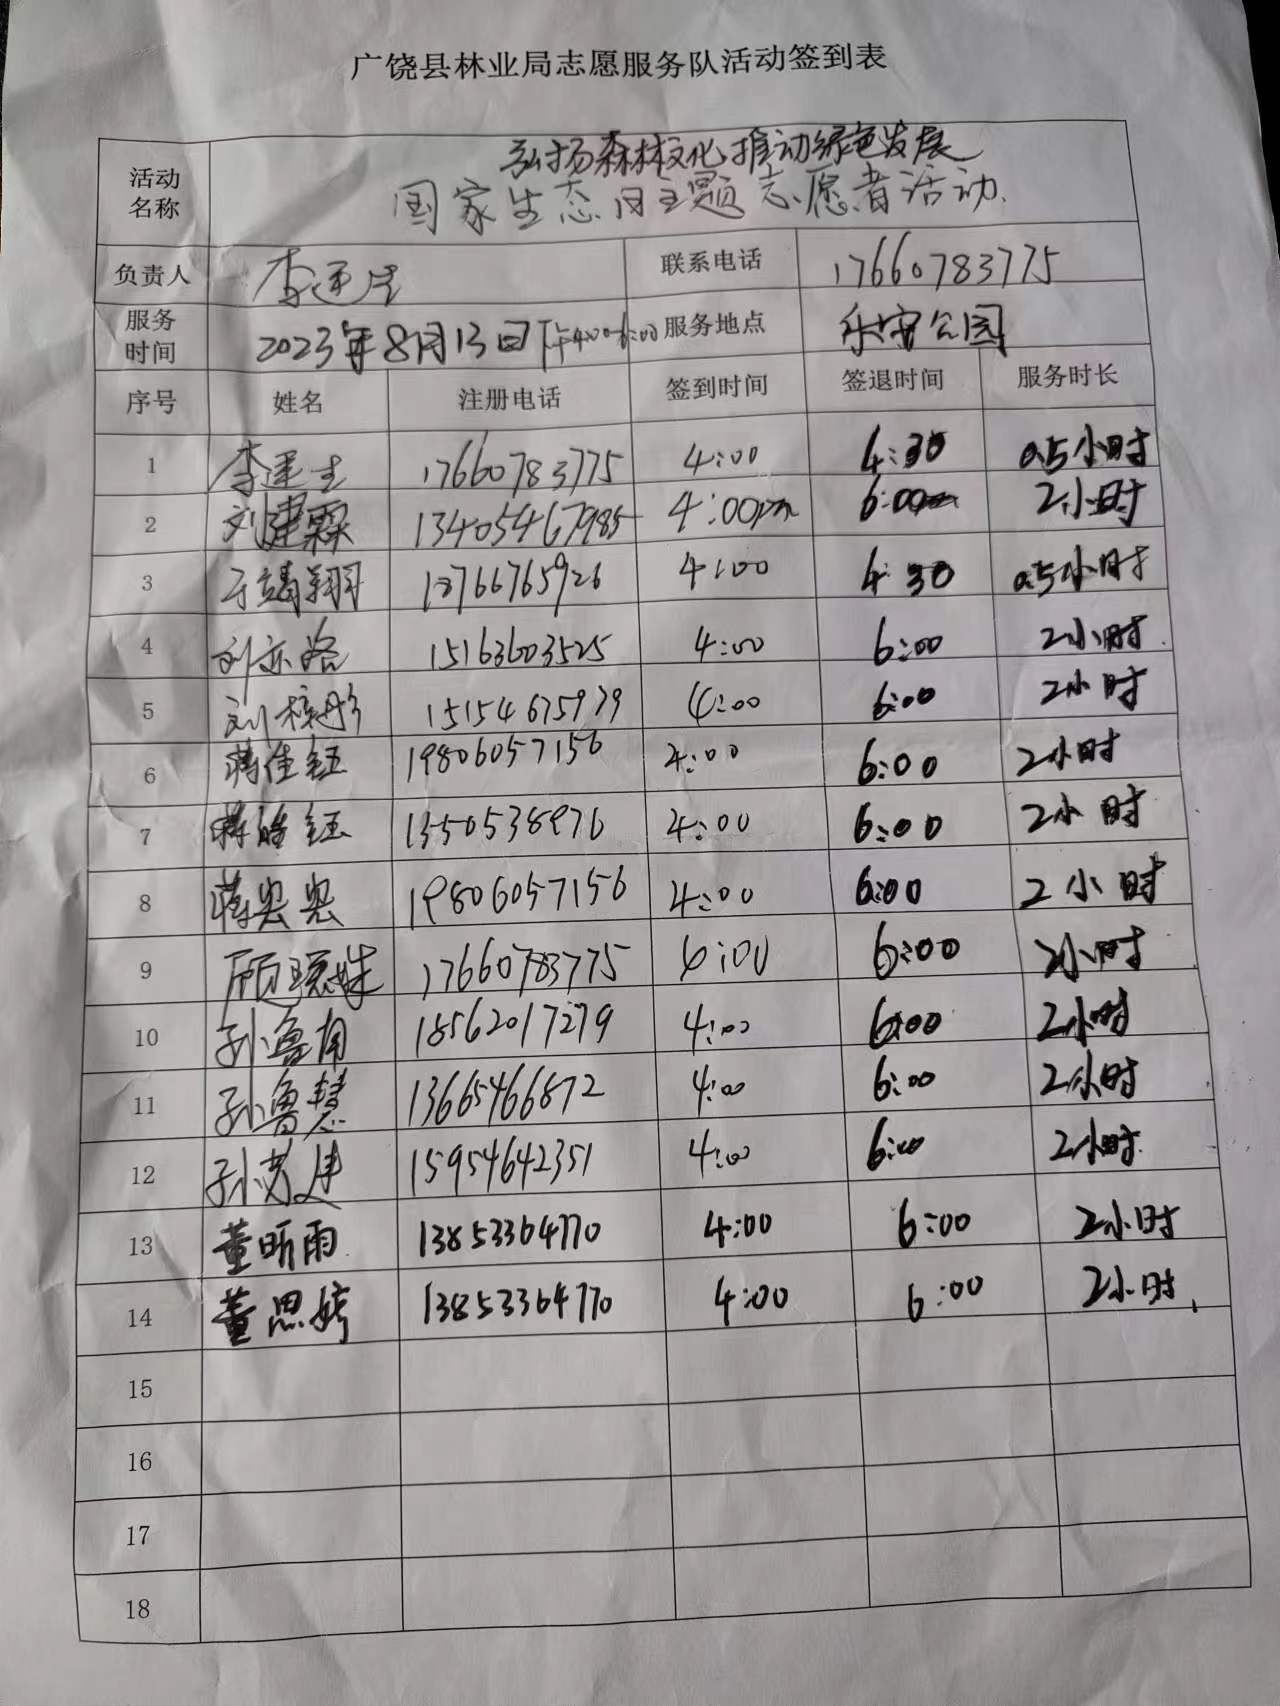 广饶县林业局志愿服务队活动签到表
活动名称 弘扬森林文化推动绿色发展
国家生态日主题志愿者活动.
负责人 李建生 联系电话 17660783775
服务时间 2023年8月13日下午4:00-6:00 服务地点 乐安公园
序号 姓名 注册电话 签到时间 签退时间 服务时长
1 李建生 17660783775 4:00 4:30 0.5小时
2 刘建霖 13405467985 4:00pm 6:00 2小时
3 于靖翔 4:00 4:30 0.5小时
4 刘亦洛 15163603525 4:00 6:00 2小时.
5 刘 15154675979 4:00 6:00 2小时
6 蒋佳钰 19806057156 4:00 6:00 2小时
7 蒋皓钰 4:00 6:00 2小时
8 蒋 19806057156 4:00 6:00 2小时
9 顾 17660783775 4:00 6:00 2小时
10 孙鲁南 18562017279 4:00 6:00 2小时
11 孙鲁慧 13665466872 4:00 6:00 2小时
12 孙 15954642351 4:00 6:00 2小时.
13 董昕雨 13853364770 4:00 6:00 2小时
14 董思婷 13853364770 4:00 6:00 2小时.
15
16
17
18